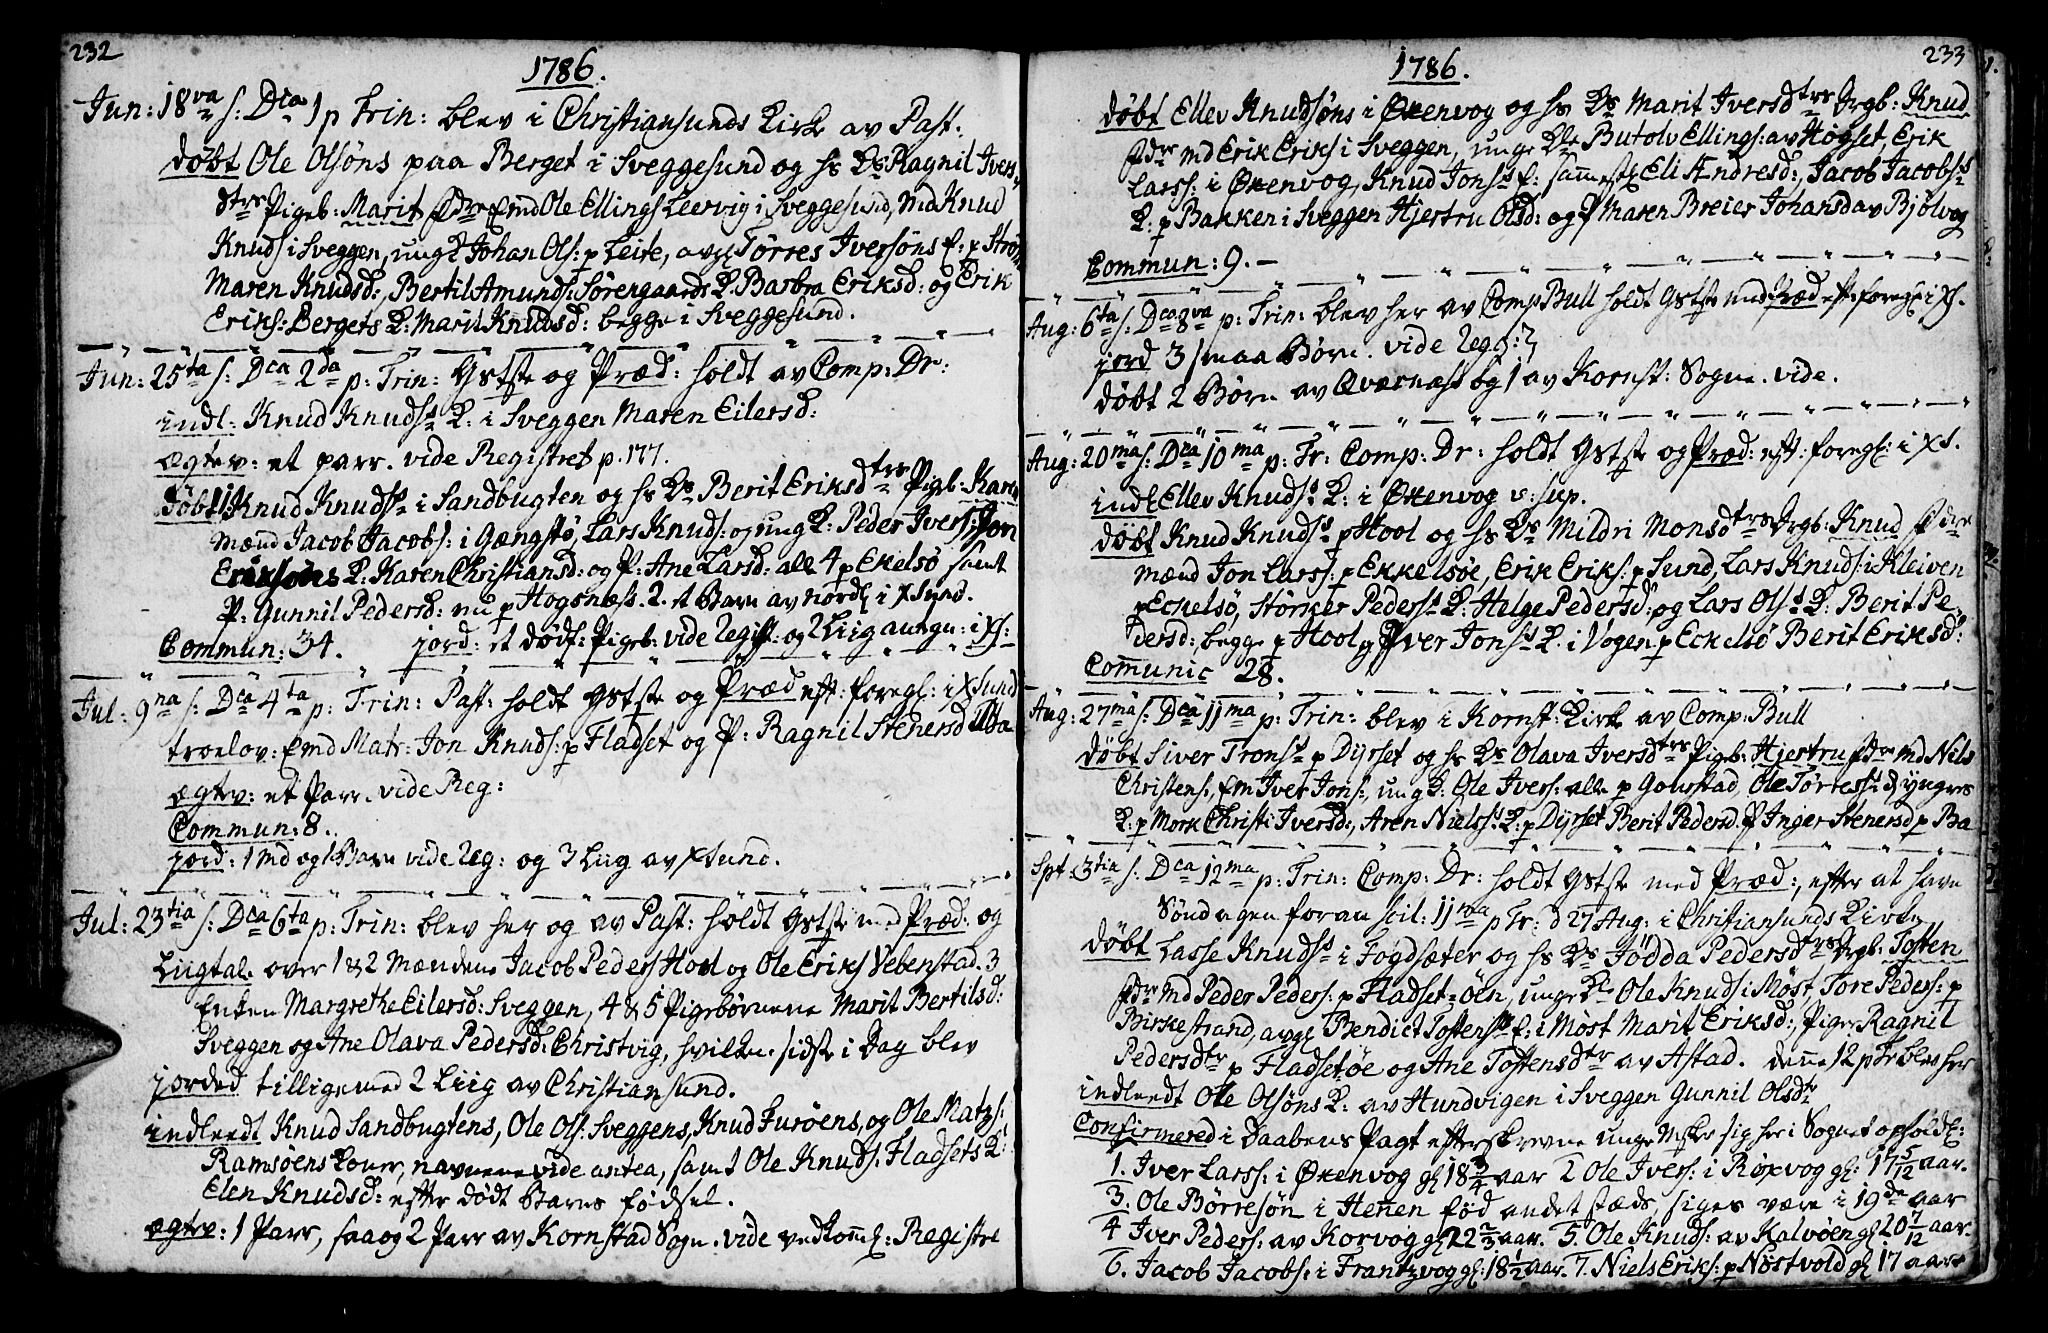 232
1786.
Jun: 18va s: Dca 1 p Trin: blev i Christiansunds Kirke av Past:
døbt Ole Olsöns paa Berget i Sveggesund og hs Ks Ragnil Ivers
dtrs Pigeb: Marit Fdre Emd Ole Ellings Leervig i Sveggesund, Md Knud
Knuds i Sveggen, ung K Johan Ols: p Leite, avg Törres Iversöns E: p Ström
Maren Knudsd:, Bertil Amunds: Sörengaards K Barbra Eriksd: og Erik
Eriks: Bergets K: Marit Knudsd: begge i Sveggesund.
Jun: 25ta s: Dca 2da p: Trin: Gstste og Præd: holdt av Comp: Dr:
indl: Knud Knudss K: i Sveggen Maren Eilersd:
ægtev: et parr. vide Registret p: 177.
døbt Knud Knudss i Sandbugten og hs Ks Berit Eriksdtrs Pigeb: Karen
Mænd Jacob Jacobs: i Gængstø, Lars Knuds: og ung K: Peder Ivers: Jon
Eriksöns K: Karen Christiansd: og P: Ane Larsd: alle 4 p Ekelsö samt
P: Gunnil Pedersd: nu p Hogsnæss. 2. et Barn av Nordl i Xsund.
Commun: 34. jord: et dödf: Pigeb: vide Regist: og 2 Liig aungn: i Xs:
Jul: 9na s: Dca 4ta p: Trin: Past: holdt Gstste og Præd eft: foregl: i Xsund
troelov: Emd Matr: Jon Knuds: p Fladset og P: Ragnil Stenersd Ulta
ægtev: et Parr. vide Reg:
Commun: 8.
jord: 1 Md og 1 Barn vide Reg: og 3 Liig av Xsund.
Jul: 23tia s: Dca 6ta p: Trin: blev her og av Past: holdt Gstste med Præd: og
Liigtale over 1 & 2 Mændene Jacob Peders Hoel og Ole Eriks Vebenstad. 3
Enken Margrethe Eilersd: Sveggen, 4 & 5 Pigebörnene Marit Bertilsd:
Sveggen og Ane Olava Pedersd: Christvig, hvilken sidste i Dag blev
jorded tillige med 2 Liig av Christiansund.
indleedt Knud Sandbugtens, Ole Ols: Sveggens, Knud Furöens, og Ole Matzs:
Ramsöens Koner, navnene vide antea, samt Ole Knuds: Fladsets K:
Elen Knudsd: efter dödt Barns födsel.
ægtev: 1 Parr, saa og 2 Parr av Kornstad Sogn. vide vedkoml: Registre
233
1786.
døbt Ellev Knudsöns i Økenvog og hs Ks Marit Iversdtrs Drgb: Knud
Fdre Md Erik Eriks i Sveggen, unge Kle Butolv Ellings: av Högset, Erik
Larss: i Økenvog, Knud Jonss E: sammestl Eli Andresd:, Jacob Jacobss
K: p Bakken i Sveggen Hjertru Olsd: og P Maren Breier Johansd av Bjölvog
Commun: 9.
Aug: 6ta s: Dca 8va p: Trin: blev her av Comp Bull holdt Gstste med Præd eft: foregl i Xs.
jord 3 smaa Börn. vide Reg:
døbt 2 Börn av Qværnæss og 1 av Kornst: Sogne. vide.
Aug: 20ma s: Dca 10ma p: Tr: Comp: Dr: holdt Gstste og Præd: eft: foregl: i Xs.
indl Ellev Knudss K: i Økenvog v: sup.
døbt Knud Knudss p Hool og hs Ks Mildri Monsdtrs Drgb: Knud Fdre
Mænd Jon Larss: p Ekkelsöe, Erik Eriks: p Sund, Lars Knuds: i Kleiven
p Eckelsö, Störker Pederss K: Helge Pedersd: og Lars Olss K: Berit Pe
dersd: begge p Hool og Iver Jonss K. i Vogen p Eckelsö Berit Eriksd:
Communic 28.
Aug: 27ma s: Dca 11ma p: Trin: blev i Kornst: Kirke av Comp: Bull
døbt Siver Tronss p Dyrset og hs Ks Olava Iversdtrs Pigeb: Hjertru Fdre Md Nils
Christens, Em Iver Jons:, ung K: Ole Ivers: alle p Gourstad, Ole Törress: d yngres
K: p Mork Christi Iversd:, Aren Nielss: K: p Dyrset Berit Pedersd. P Inger Stenersd p Ba
Spt: 3tia s: Dca 12ma p: Trin: Comp: Dr: holdt Gstste med Præd:, efter at have
Søndagen foran scil: 11ma p Tr: d 27 Aug: i Christiansunds Kirke
døbt Lasse Knudss i Fogdsæter og hs Ks Jödda Pedersdtrs Drgb: Tosten
Fdre Md Peder Peders: p Fladset-öen, unge Kle Ole Knuds i Möst, Tore Peders: p
Birkestrand, avgl Bendict Tostenss E: i Möst Marit Eriksd:, Piger Ragnil
Pedersdtr p Fladsetöe og Ane Tostensdtr av Astad. denne 12 p Tr blev her
indleedt Ole Olsöns K: av Hundvigen i Sveggen Gunnil Olsdtr
Confirmered i Daabens Pagt efterskrevne unge Msker sig her i Sognet opholdl:
1. Iver Larss: i Økenvog gl 18 3/4 aar 2 Ole Ivers: i Röxvog gl: 17 5/12 aar.
3. Ole Börresön i Henen föd andet stæds, siges være i 19de aar
4 Iver Peders: av Korvog gl 22 2/3 aar. 5. Ole Knuds: av Kalvöen gl 20 7/12 aar.
6. Jacob Jacobs: i Frantzvog gl: 18 1/2 aar. 7. Niels Eriks: p Nöstvold gl 17 aar